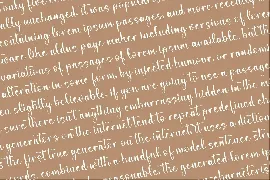 unchanged. it was popular
containing lorem ipsum passages, and more recently
like aldus page maker including versions of lorem
variations of passages of lorem ipsum available, but the
alteration in some form, by injected humour, or random
slightly believable. if you are going to use a passage
sure there isn't anything embarrassing hidden in the
generators on the internet tend to repeat predefined
the first true generator on the internet. it uses a diction
combined with a handful of model sentence
the generated lorem